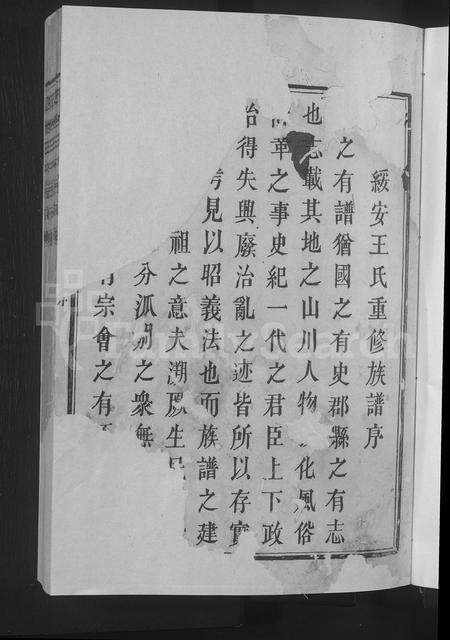 綏安王氏重修族譜序
之有譜猶國之有史郡縣之有志
也志載其地之山川人物化風俗
革之事史紀一代之君臣上下政
治得失興廢治亂之迹皆所以存實
見以昭義法也而族譜之建
祖之意夫溯厥生民
分派別之衆無
宗會之有
序
FamilySearch